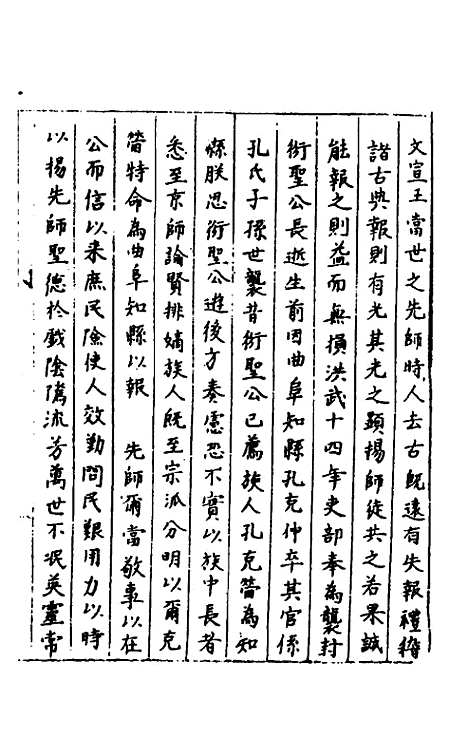 文宣王當世之先師時人去古既遠有失報禮稽
諸古典報則有光其光之顯揚師徒共之若果誠
能報之則益而無損洪武十四年吏部奉為襲封
衍聖公長逝生前因曲阜知縣孔克仲卒其官係
孔氏子孫世襲昔衍聖公已薦族人孔克䇔為知
縣朕思衍聖公逝後方奏慮恐不實以族中長者
悉至京師論賢排嫡族人既至宗派分明以爾克
䇔特命為曲阜知縣以報 先師爾當敬事以在
公而信以來庶民險使人效勤問民艱用力以時
以揚先師聖德於戲陰隲流芳萬世不泯英靈常